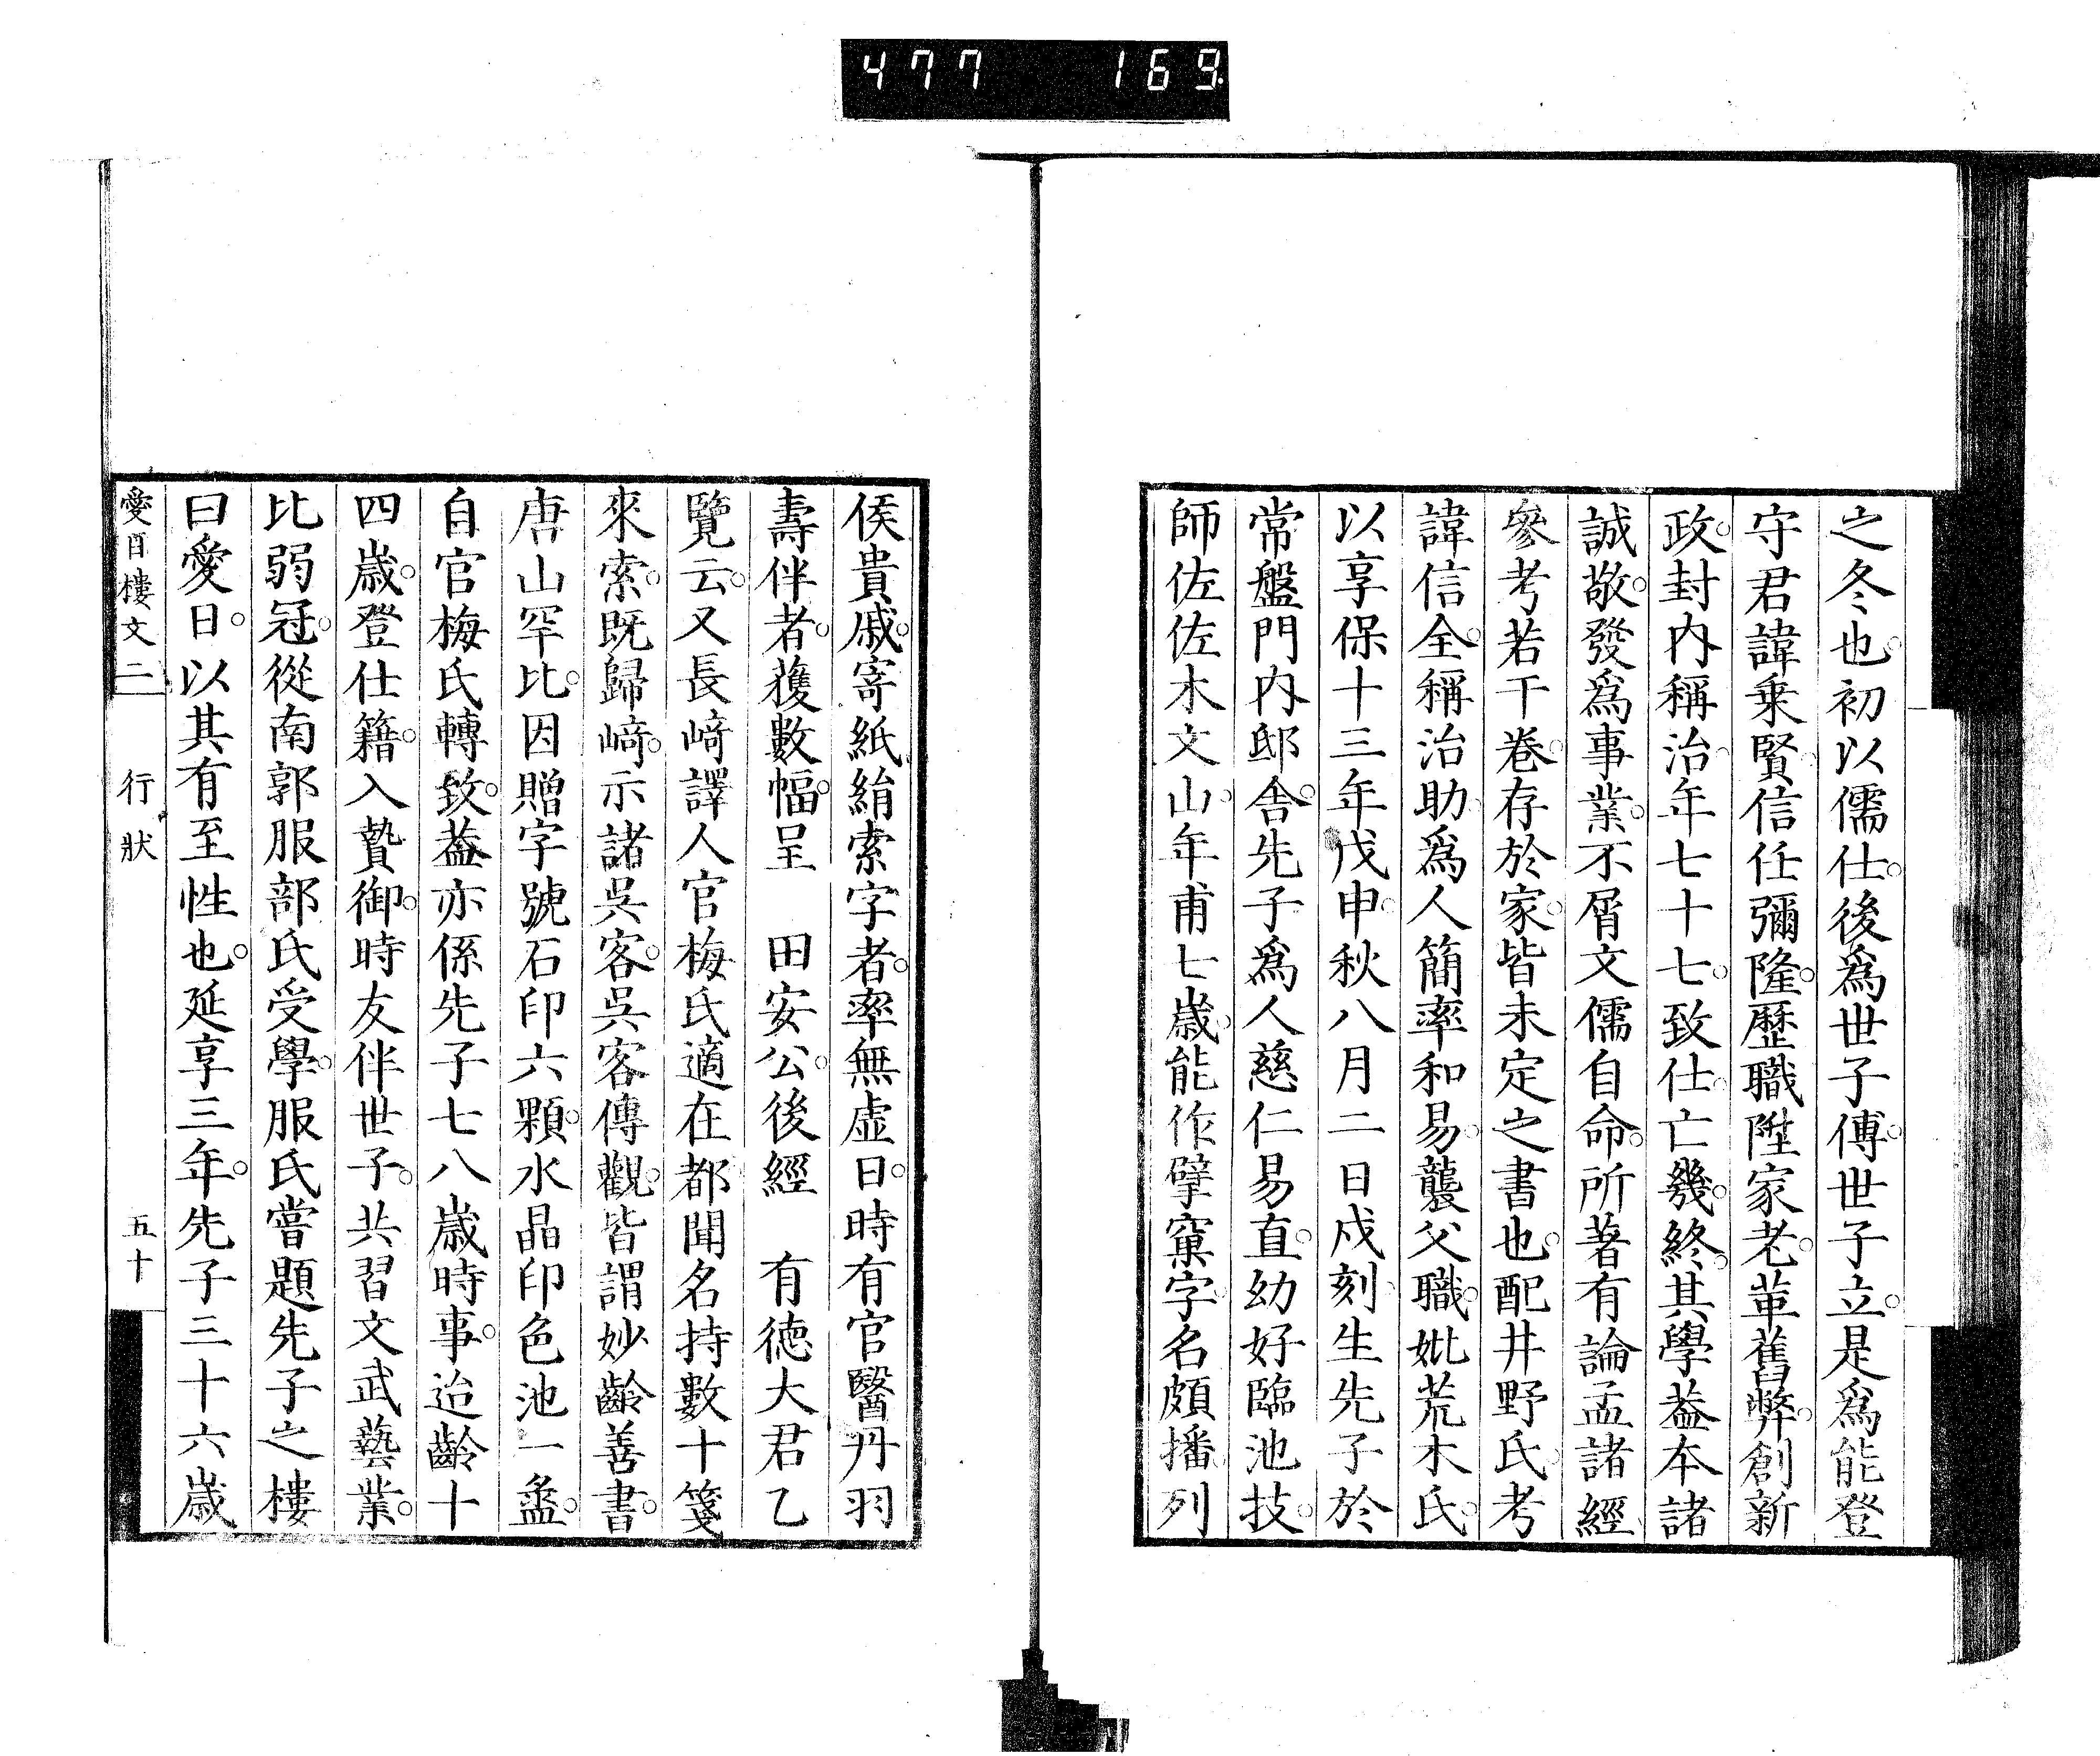 477 169
之冬也。初以儒仕。後爲世子傅。世子立。是爲能登
守君諱乗賢。信任彌隆。歷職陞家老。革舊弊。創新
政。封内稱治。年七十七。致仕。亡幾。終。其學葢本諸
誠敬。發爲事業。不屑文儒自命。所著有論孟諸經
參考若干卷。存於家。皆未定之書也。配井野氏。考
諱信全。稱治助。爲人簡率和易。襲父職。妣荒木氏。
以享保十三年戊申。秋八月二日戌刻。生先子於
常盤門内邸舍。先子爲人慈仁易直。幼好臨池技。
師佐佐木文山。年甫七歲。能作擘窠字。名頗播。列
侯貴戚。寄紙絹索字者。率無虚日。時有官醫丹羽
壽伴者。獲數幅。呈　田安公。後經　有德大君乙
覽云。又長﨑譯人官梅氏適在都聞名持數十箋
來索。既歸﨑。示諸吳客。吳客傳觀。皆謂妙齡善書。
唐山罕比。因贈字號石印六顆。水晶印色池一盏。
自官梅氏轉致。葢亦係先子七八歲時事。迨齡十
四歲。登仕籍。入贄御。時友伴世子。共習文武藝業。
比弱冠。從南郭服部氏受學。服氏嘗題先子之樓
曰愛日。以其有至性也。延享三年。先子三十六歲
愛日樓文二　行狀　五十